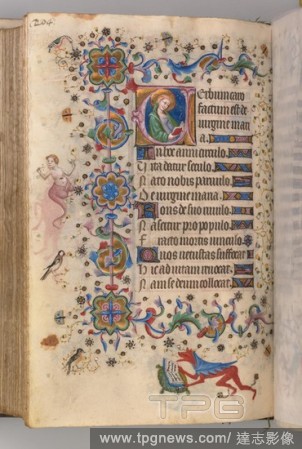 204
erbum caro
factum est de
uirgine mari
a.
In hoc anni circulo.
Uita datur seculo.
Nato nobis paruulo.
De uirgine maria.
Fons de suo riuulo.
Nascitur pro populo.
Fracto mortis uinculo.
Quos uetustas suffocat.
Hic ad uitam reuocat.
Nam se deus collocat.
TPG
www.tpgnews.com/達志影像